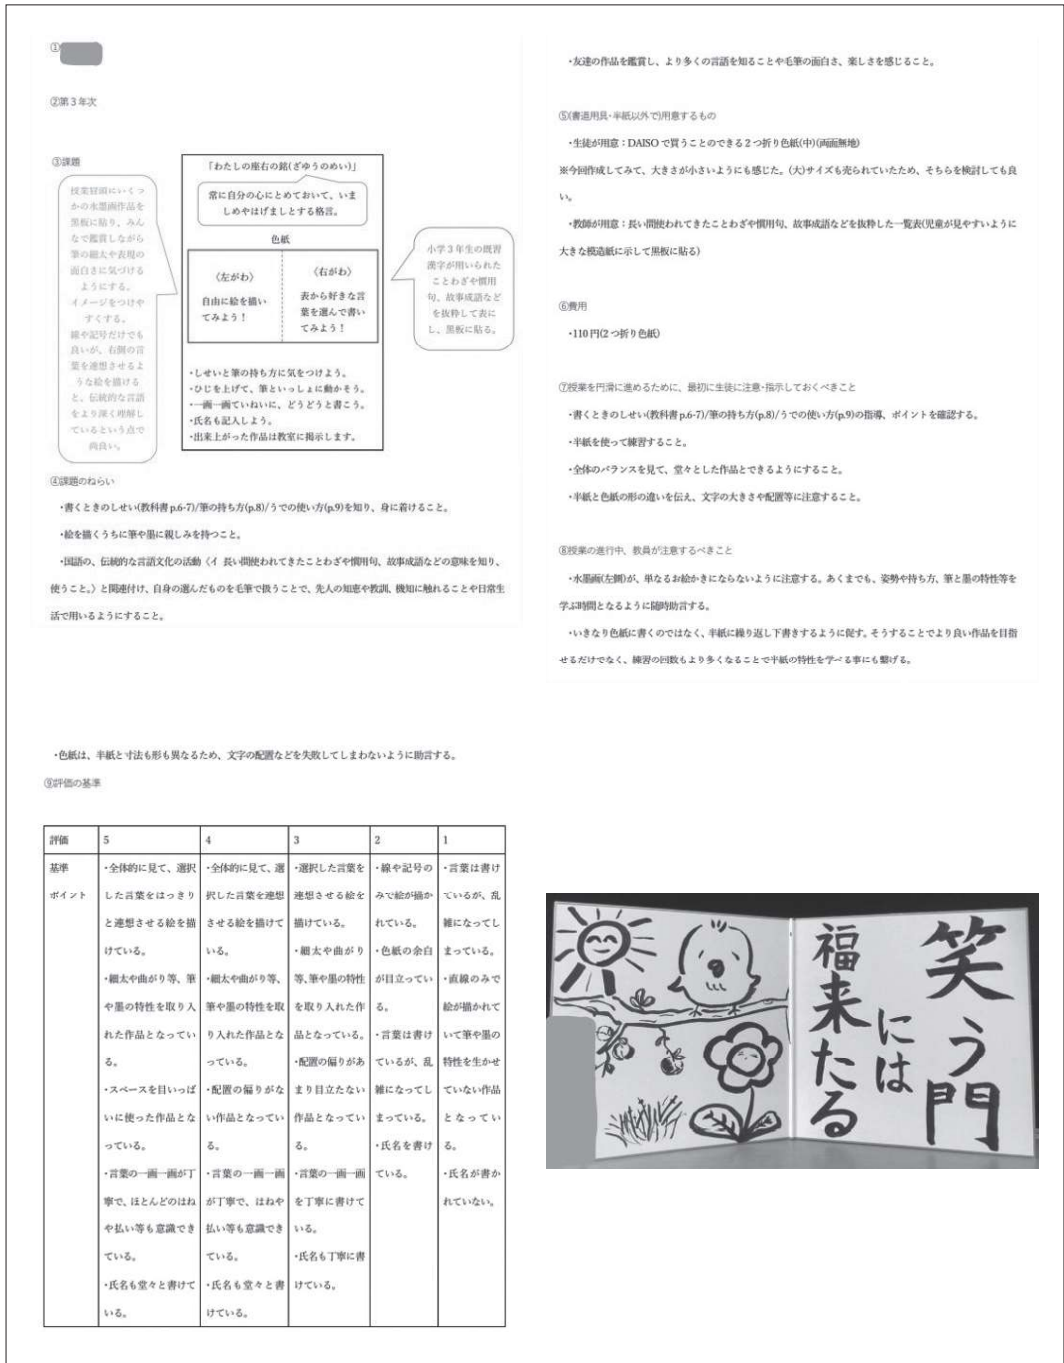 ①
②第3年次
③課題
授業冒頭にいくつ
かの水墨画作品を
黒板に貼り、みん
なで鑑賞しながら
筆の細太や表現の
面白さに気づける
ようにする。
イメージをつけや
すくする。
線や記号だけでも
良いが、右側の言
葉を連想させるよ
うな絵を描ける
と、伝統的な言語
をより深く理解し
ているという点で
尚良い。
「わたしの座右の銘(ざゆうのめい)」
常に自分の心にとめておいて、いま
しめやはげましとする格言。
色紙
〈左がわ〉
自由に絵を描い
てみよう！
〈右がわ〉
表から好きな言
葉を選んで書い
てみよう！
・しせいと筆の持ち方に気をつけよう。
・ひじを上げて、筆といっしょに動かそう。
・一画一画ていねいに、どうどうと書こう。
・氏名も記入しよう。
・出来上がった作品は教室に掲示します。
小学3年生の既習
漢字が用いられた
ことわざや慣用
句、故事成語など
を抜粋して表に
し、黒板に貼る。
④課題のねらい
・書くときのしせい(教科書 p.6-7)/筆の持ち方(p.8)/うでの使い方(p.9)を知り、身に着けること。
・絵を描くうちに筆や墨に親しみを持つこと。
・国語の、伝統的な言語文化の活動〈イ 長い間使われてきたことわざや慣用句、故事成語などの意味を知り、
使うこと。〉と関連付け、自身の選んだものを毛筆で扱うことで、先人の知恵や教訓、機知に触れることや日常生
活で用いるようにすること。
・友達の作品を鑑賞し、より多くの言語を知ることや毛筆の面白さ、楽しさを感じること。
⑤(書道用具・半紙以外で)用意するもの
・生徒が用意：DAISO で買うことのできる2つ折り色紙(中)(両面無地)
※今回作成してみて、大きさが小さいようにも感じた。(大)サイズも売られていたため、そちらを検討しても良
い。
・教師が用意：長い間使われてきたことわざや慣用句、故事成語などを抜粋した一覧表(児童が見やすいように
大きな模造紙に示して黒板に貼る)
⑥費用
・110 円(2 つ折り色紙)
⑦授業を円滑に進めるために、最初に生徒に注意・指示しておくべきこと
・書くときのしせい(教科書 p.6-7)/筆の持ち方(p.8)/うでの使い方(p.9)の指導、ポイントを確認する。
・半紙を使って練習すること。
・全体のバランスを見て、堂々とした作品とできるようにすること。
・半紙と色紙の形の違いを伝え、文字の大きさや配置等に注意すること。
⑧授業の進行中、教員が注意するべきこと
・水墨画(左側)が、単なるお絵かきにならないように注意する。あくまでも、姿勢や持ち方、筆と墨の特性等を
学ぶ時間となるように随時助言する。
・いきなり色紙に書くのではなく、半紙に繰り返し下書きするように促す。そうすることでより良い作品を目指
せるだけでなく、練習の回数もより多くなることで半紙の特性を学べる事にも繋げる。
・色紙は、半紙と寸法も形も異なるため、文字の配置などを失敗してしまわないように助言する。
⑨評価の基準
評価
5
4
3
2
1
基準
ポイント
・全体的に見て、選択
した言葉をはっきり
と連想させる絵を描
けている。
・細太や曲がり等、筆
や墨の特性を取り入
れた作品となってい
る。
・スペースを目いっぱ
いに使った作品とな
っている。
・言葉の一画一画が丁
寧で、ほとんどのはね
や払い等も意識でき
ている。
・氏名も堂々と書けて
いる。
・全体的に見て、選
択した言葉を連想
させる絵を描けて
いる。
・細太や曲がり等、
筆や墨の特性を取
り入れた作品とな
っている。
・配置の偏りがな
い作品となってい
る。
・言葉の一画一画
が丁寧で、はねや
払い等も意識でき
ている。
・氏名も堂々と書
けている。
・選択した言葉を
連想させる絵を
描けている。
・細太や曲がり
等、筆や墨の特性
を取り入れた作
品となっている。
・配置の偏りがあ
まり目立たない
作品となってい
る。
・言葉の一画一画
を丁寧に書けて
いる。
・氏名も丁寧に書
けている。
・線や記号の
みで絵が描か
れている。
・色紙の余白
が目立ってい
る。
・言葉は書け
ているが、乱
雑になってし
まっている。
・氏名を書け
ている。
・言葉は書け
ているが、乱
雑になってし
まっている。
・直線のみで
絵が描かれて
いて筆や墨の
特性を生かせ
ていない作品
となってい
る。
・氏名が書か
れていない。
笑う門
には
福来たる